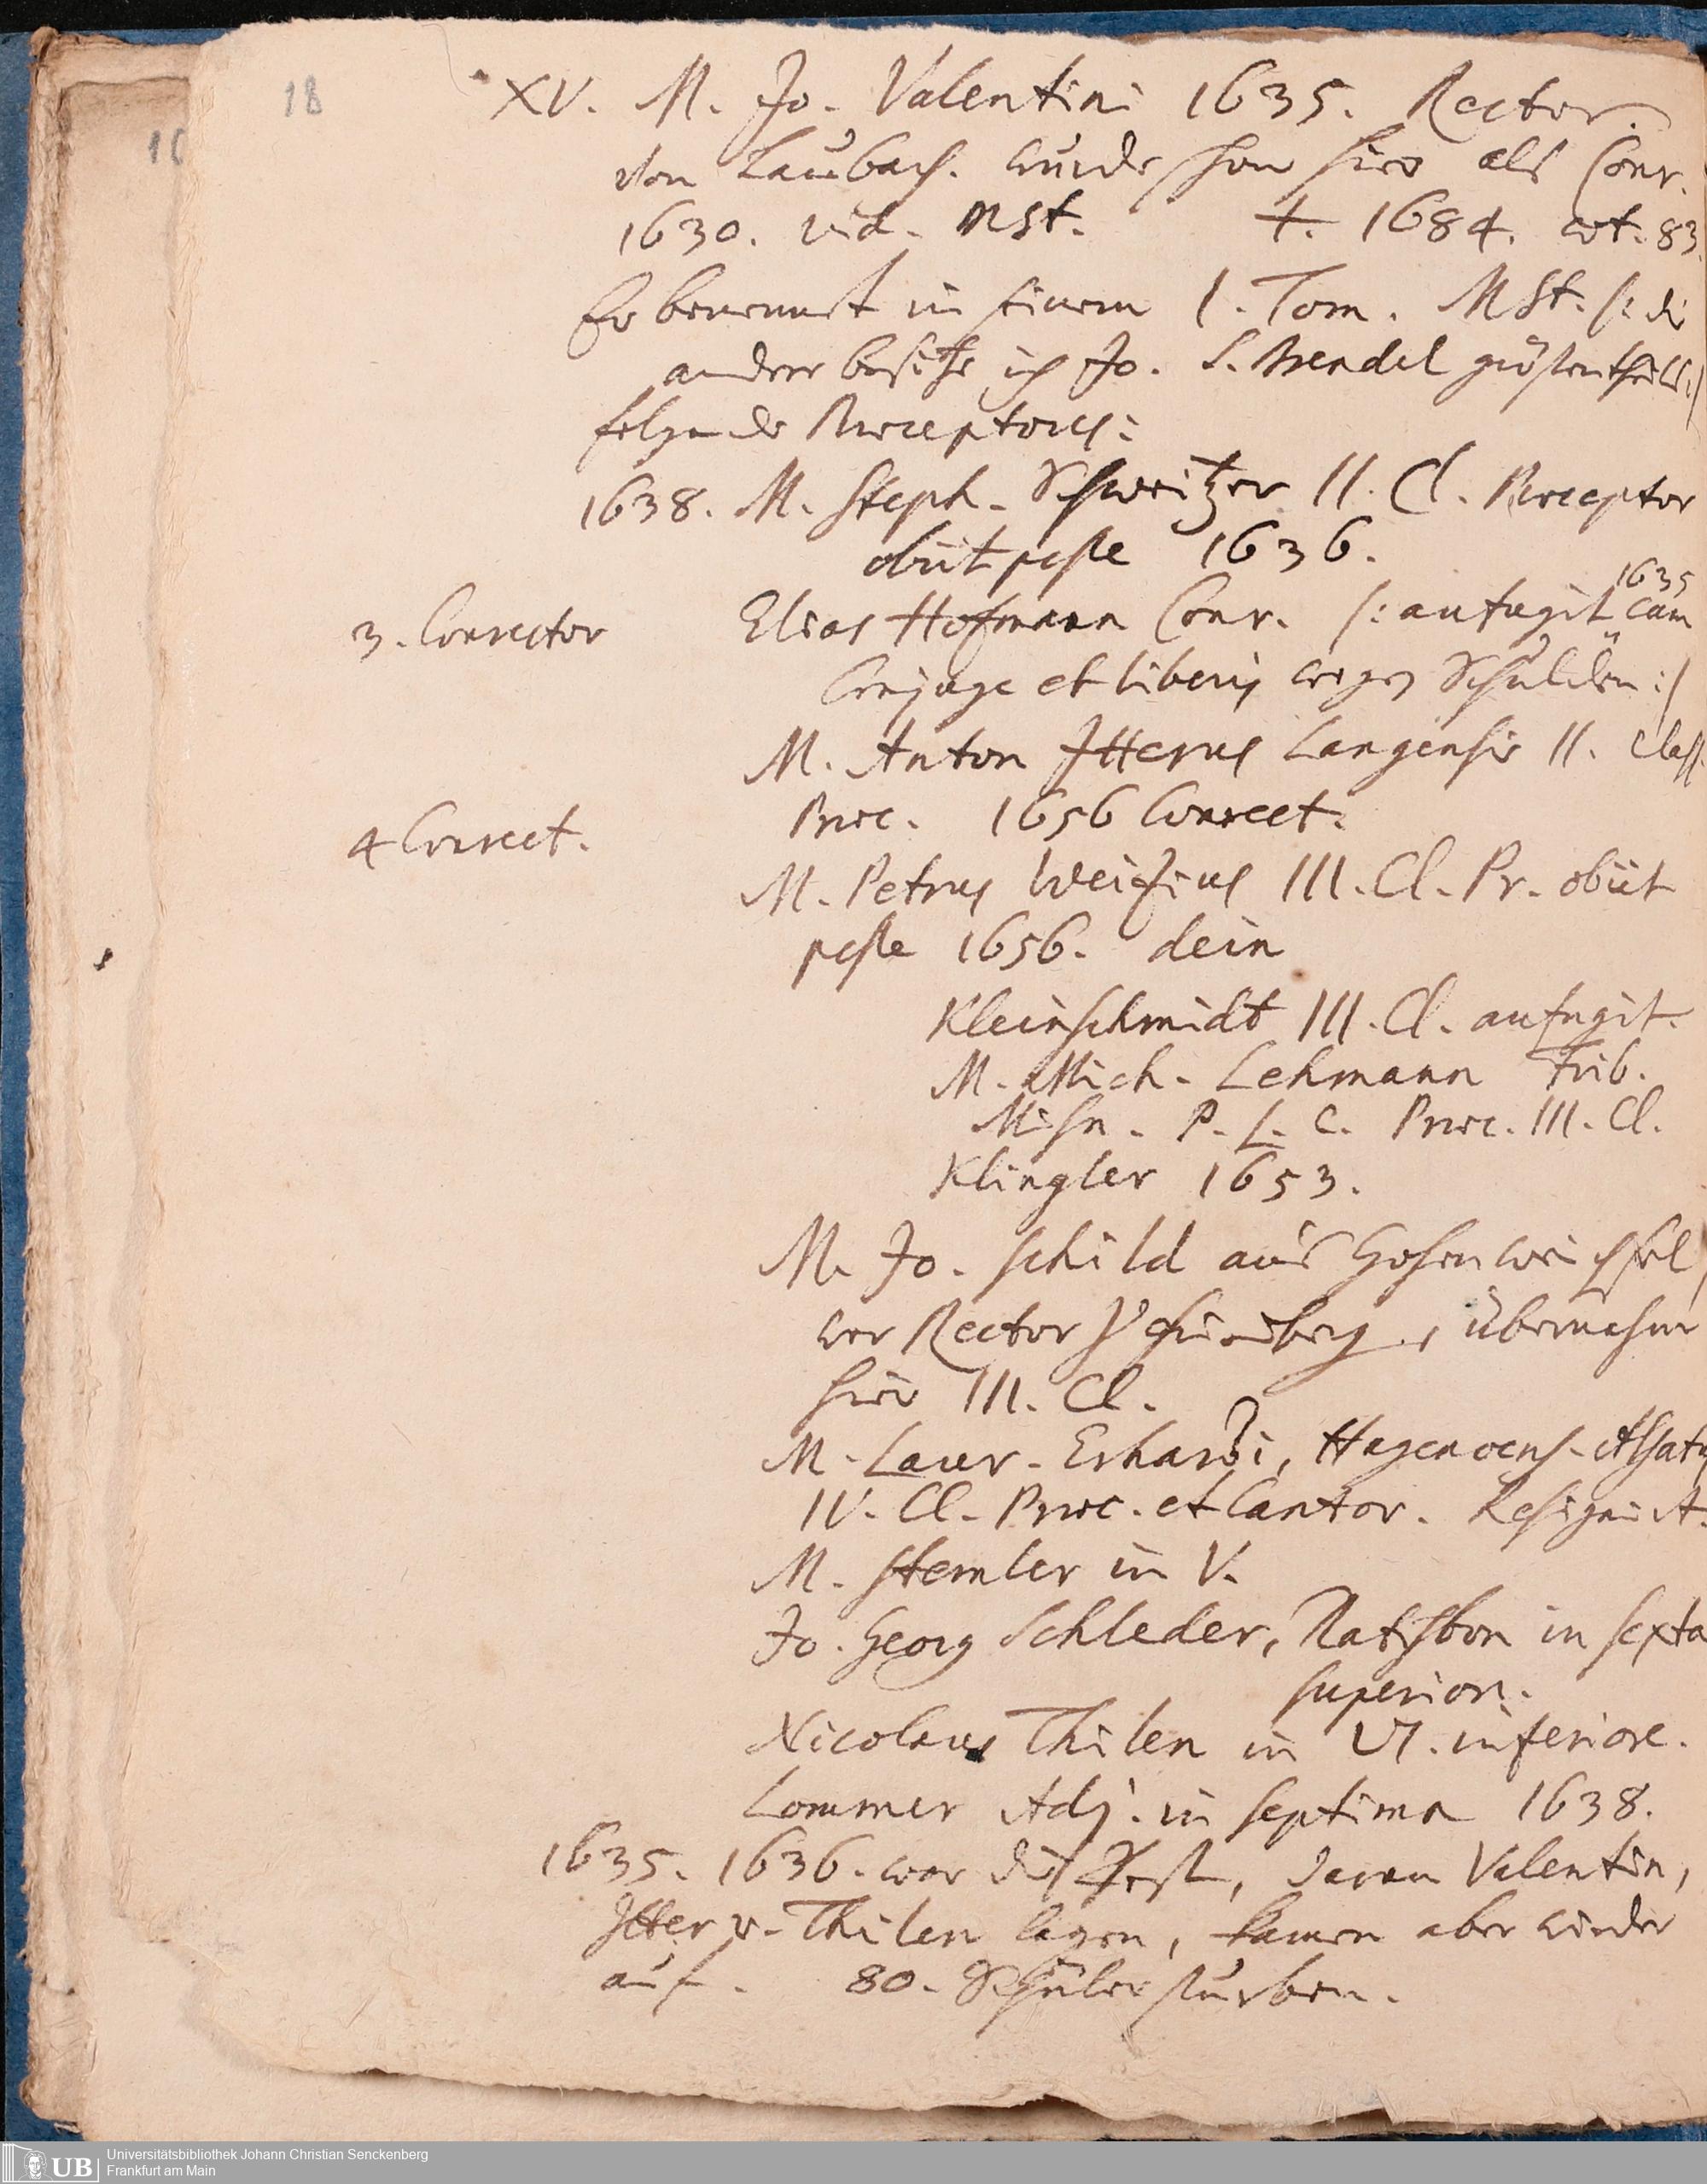 18
XV. M. Jo. Valentini 1635. Rector.
Von Laubach. wurde schon hier als Conr.
1630. vid. MSt. †. 1684. aet. 83.
Er benennet in seinem 1. Tom. MSt. /: die
andere besitze ich Jo. L. Wendel gröstentheils :/
folgende Praeceptores:
1638. M. Steph. Schweitzer II. Cl. Praeceptor
obiit peste 1636.
3. Conrector
Elias Hofmann Conr. /: aufugit 1635 cum
Conjuge et liberis wegen Schulden :/
M. Anton Itterus Langensis II. Class.
Praec. 1656 Conrect.
4 Conrect.
M. Petrus Weizius III. Cl. Pr. obiit
peste 1656. dein
Kleinschmidt III. Cl. aufugit.
M. Mich. Lehmann Frib.
Misn. P. L. C. Praec. III. Cl.
Klingler 1653.
M. Jo. Schild aus Hohenweichsel,
war Rector, übernahm
hier III. Cl.
M. Laur. Erhardi, Hagenoens. Alsatus
IV. Cl. Praec. et Cantor. Resignirt.
M. Stemler in V.
Jo. Georg Schleder, Ratisbon in sexta
superior.
Nicolaus Thilen in VI. inferiore.
Lommer Adj. in septima 1638.
1635. 1636. war die Pest, daran Valentin,
Itter u. Thilen lagen, kamen aber wieder
auf. 80. Schüler sturben.
UB
Universitätsbibliothek Johann Christian Senckenberg
Frankfurt am Main